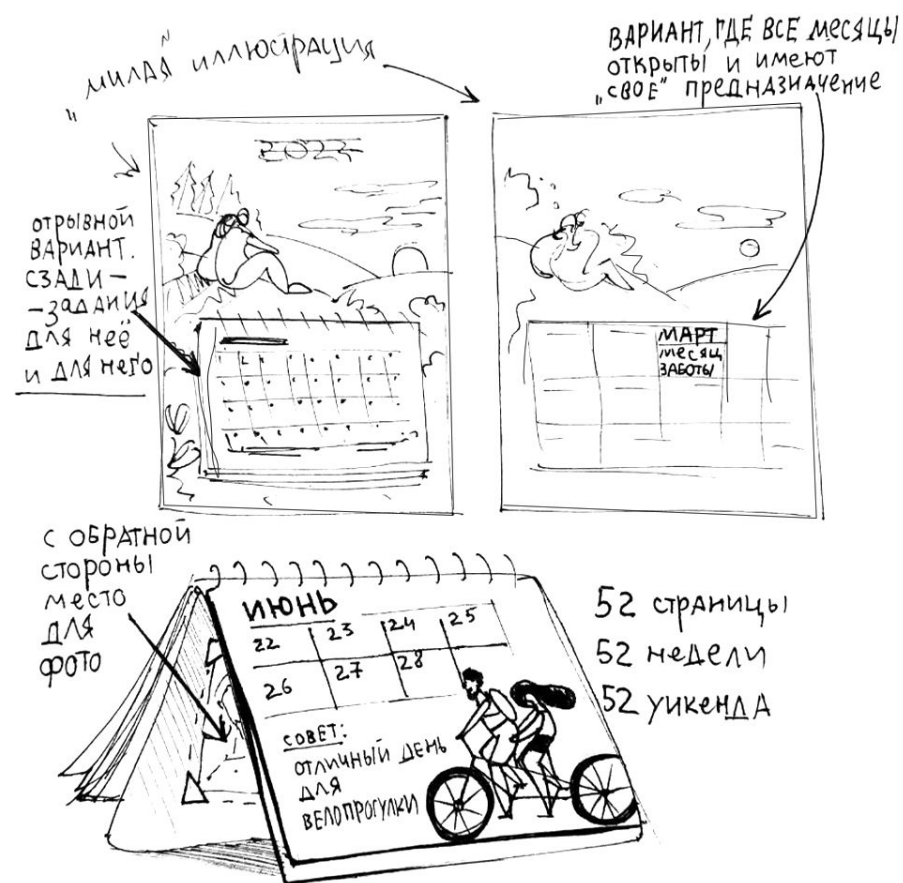 „милая" иллюстрация
ВАРИАНТ, ГДЕ ВСЕ МЕСЯЦЫ
ОТКРЫТЫ И ИМЕЮТ
„СВОЕ" ПРЕДНАЗНАЧЕНИЕ
ОТРЫВНОЙ
ВАРИАНТ.
СЗАДИ –
– ЗАДАНИЯ
ДЛЯ НЕЁ
И ДЛЯ НЕГО
МАРТ
МЕСЯЦ
ЗАБОТЫ
С ОБРАТНОЙ
СТОРОНЫ
МЕСТО
ДЛЯ
ФОТО
ИЮНЬ
22 23 24 25
26 27 28
СОВЕТ:
ОТЛИЧНЫЙ ДЕНЬ
ДЛЯ
ВЕЛОПРОГУЛКИ
52 СТРАНИЦЫ
52 НЕДЕЛИ
52 УИКЕНДА